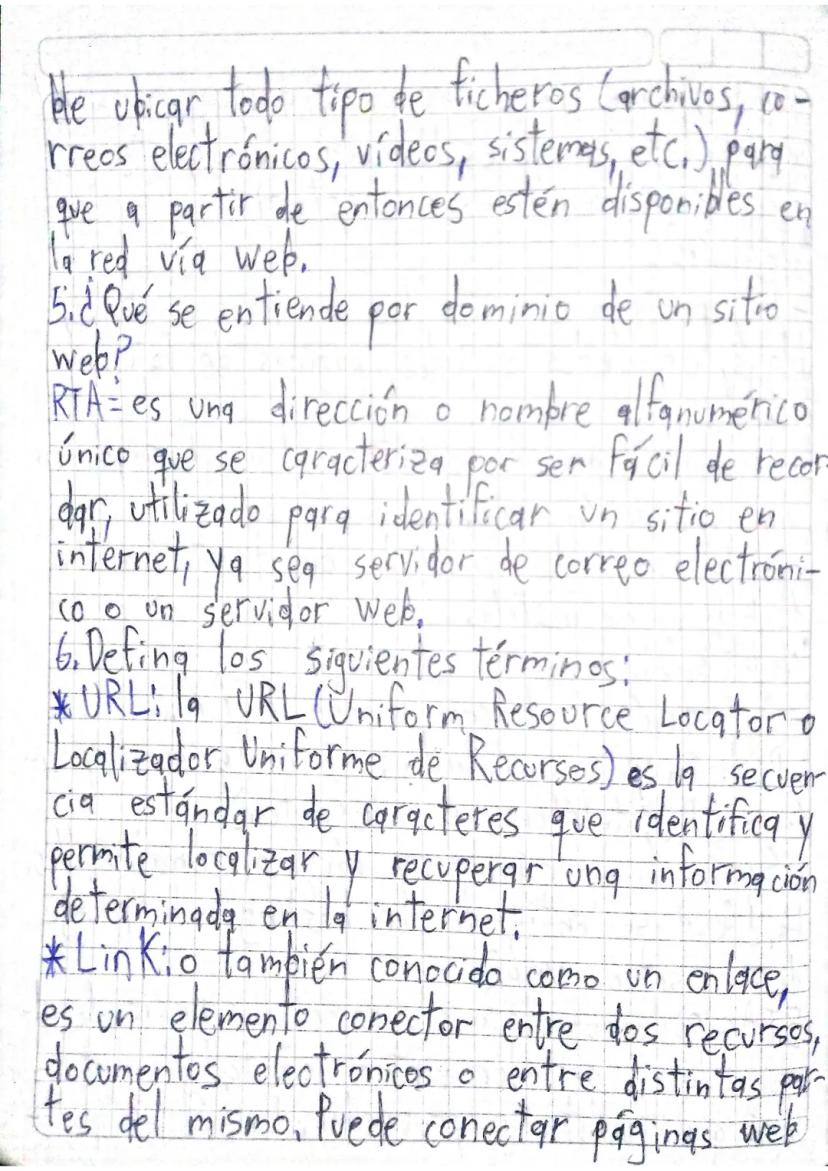 de ubicar todo tipo de ficheros (archivos, co-
rreos electrónicos, vídeos, sistemas, etc.) para
que a partir de entonces estén disponibles en
la red vía web.
5. ¿Qué se entiende por dominio de un sitio
web?
RTA= es una dirección o nombre alfanumérico
único que se caracteriza por ser fácil de recor-
dar, utilizado para identificar un sitio en
internet, ya sea servidor de correo electróni-
co o un servidor web.
6. Defina los siguientes términos:
*URL: la URL (Uniform Resource Locator o
Localizador Uniforme de Recursos) es la secuen-
cia estándar de caracteres que identifica y
permite localizar y recuperar una información
determinada en la internet.
*LinK: o también conocido como un enlace,
es un elemento conector entre dos recursos,
documentos electrónicos o entre distintas par-
tes del mismo. Puede conectar páginas web